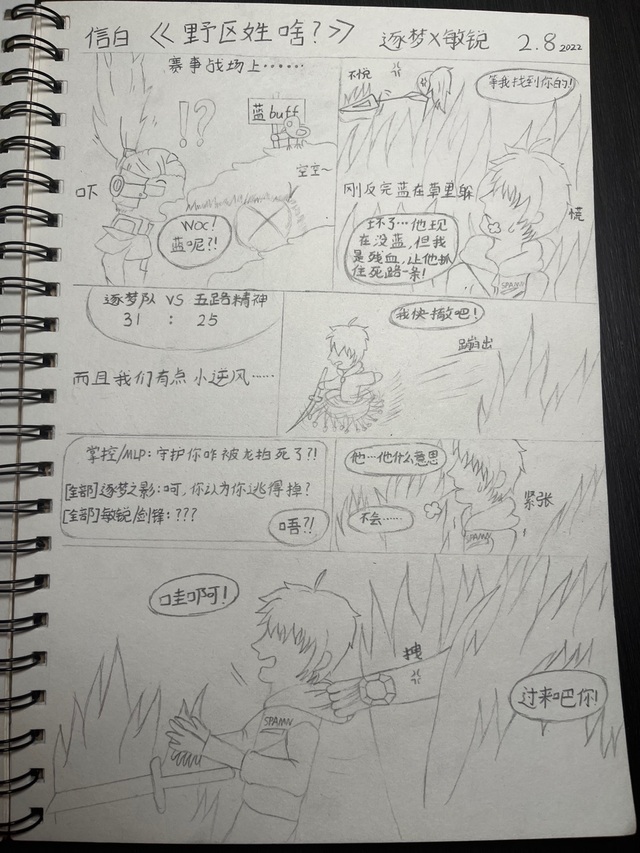 信白《野区姓啥?》 逐梦X敏锐 2.8 2022
赛事战场上……
!?
蓝buff
空空~
吓
WOC!
蓝呢?!
不悦
等我找到你的!
刚反完蓝在草里躲
慌
坏了…他现
在没蓝,但我
是残血,让他抓
住死路一条!
SPANN
逐梦队 VS 五路精神
31 : 25
而且我们有点小逆风……
我快撤吧!
蹦出
掌控/MLP:守护你咋被龙拍死了?!
[全部]逐梦之影:呵,你以为你逃得掉?
[全部]敏锐/剑锋:???
唔?!
他…他什么意思
不会……
紧张
SPANN
哇啊啊!
拽
SPANN
过来吧你!